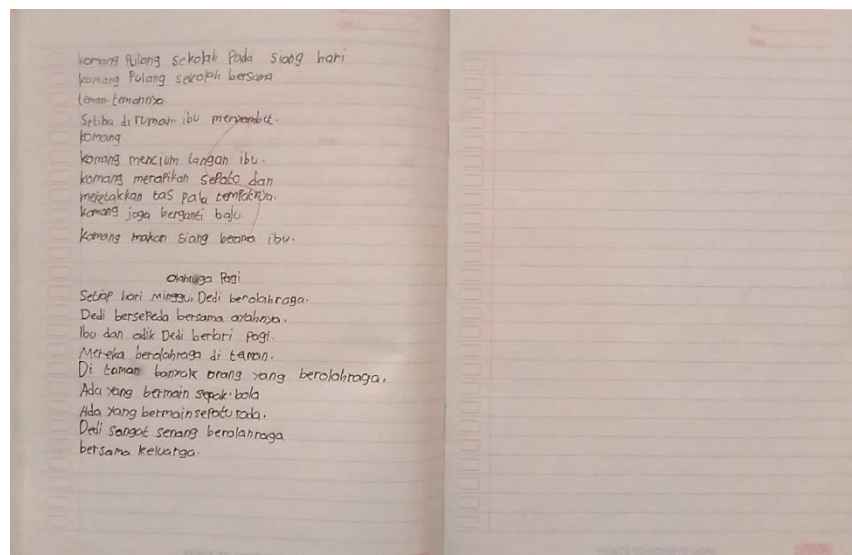 komang Pulang sekolah Pada siang hari
komang Pulang sekolah bersama
teman-temannya
Setiba di rumah. ibu menyambut.
komang
komang mencium tangan ibu.
komang merapikan sepato dan
meletakkan tas pada tempatnya.
komang joga berganti baju.
komang makan siang ibu.
Olahraga Pagi
Setiap hari minggu, Dedi berolahraga.
Dedi bersepeda bersama ayahnya.
Ibu dan adik Dedi berlari pagi.
Mereka berolahraga di taman.
Di taman banyak orang yang berolahraga.
Ada yang bermain sepak bola
Ada yang bermain sepatu roda.
Dedi sangat senang berolahraga
bersama keluarga.